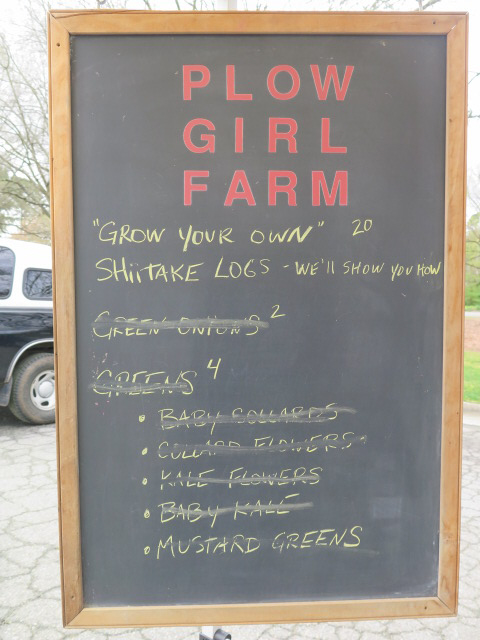 PLOW
GIRL
FARM
"GROW YOUR OWN" 20
SHiiTAKE LOGS - WE'LL SHOW YOU HOW
GREEN ONIONS 2
GREENS 4
• BABY COLLARDS
• COLLARD FLOWERS
• KALE FLOWERS
• BABY KALE
• MUSTARD GREENS